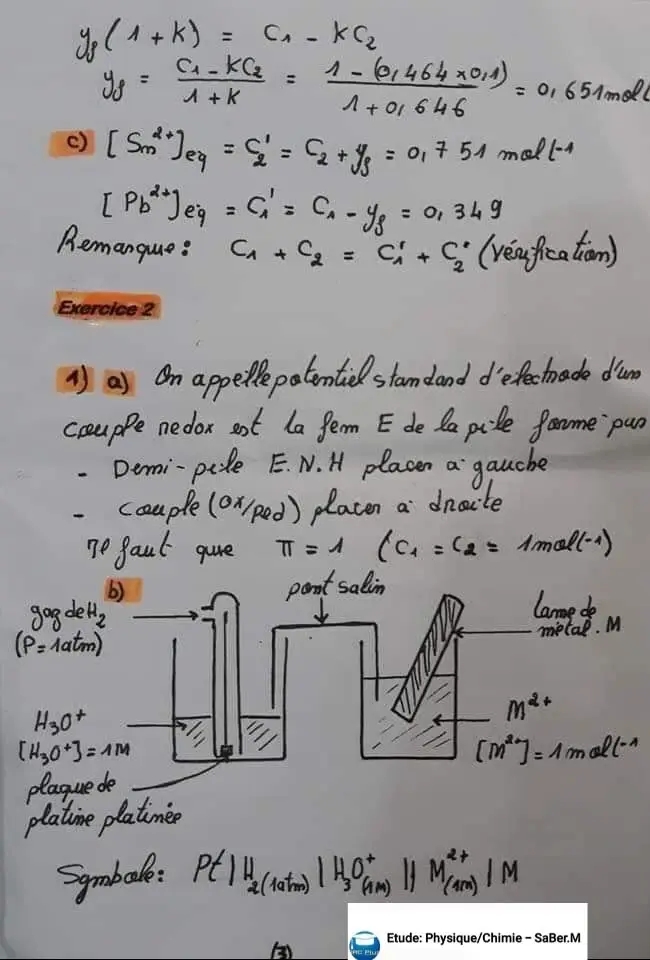 yf (1 + K) = C1 - KC2
yf = (C1 - KC2) / (1 + K) = (1 - (0,464 × 0,1)) / (1 + 0,646) = 0,651 mol L
c) [Sn2+]éq = C'2 = C2 + yf = 0,751 mol L-1
[Pb2+]éq = C'1 = C1 - yf = 0,349
Remarque : C1 + C2 = C'1 + C'2 (vérification)
Exercice 2
1) a) On appelle potentiel standard d'électrode d'un
couple redox est la fem E de la pile formé par
- Demi-pile E.N.H placer à gauche
- couple (ox/red) placer à droite
Il faut que π = 1 (C1 = C2 = 1 mol L-1)
b) pont salin
gaz de H2
(P = 1atm)
lame de
métal M
H3O+
[H3O+] = 1M
M2+
[M2+] = 1 mol L-1
plaque de
platine platinée
Symbole : Pt | H2 (1atm) | H3O+ (1M) || M2+ (1M) | M
(3)
Etude: Physique/Chimie – SaBer.M